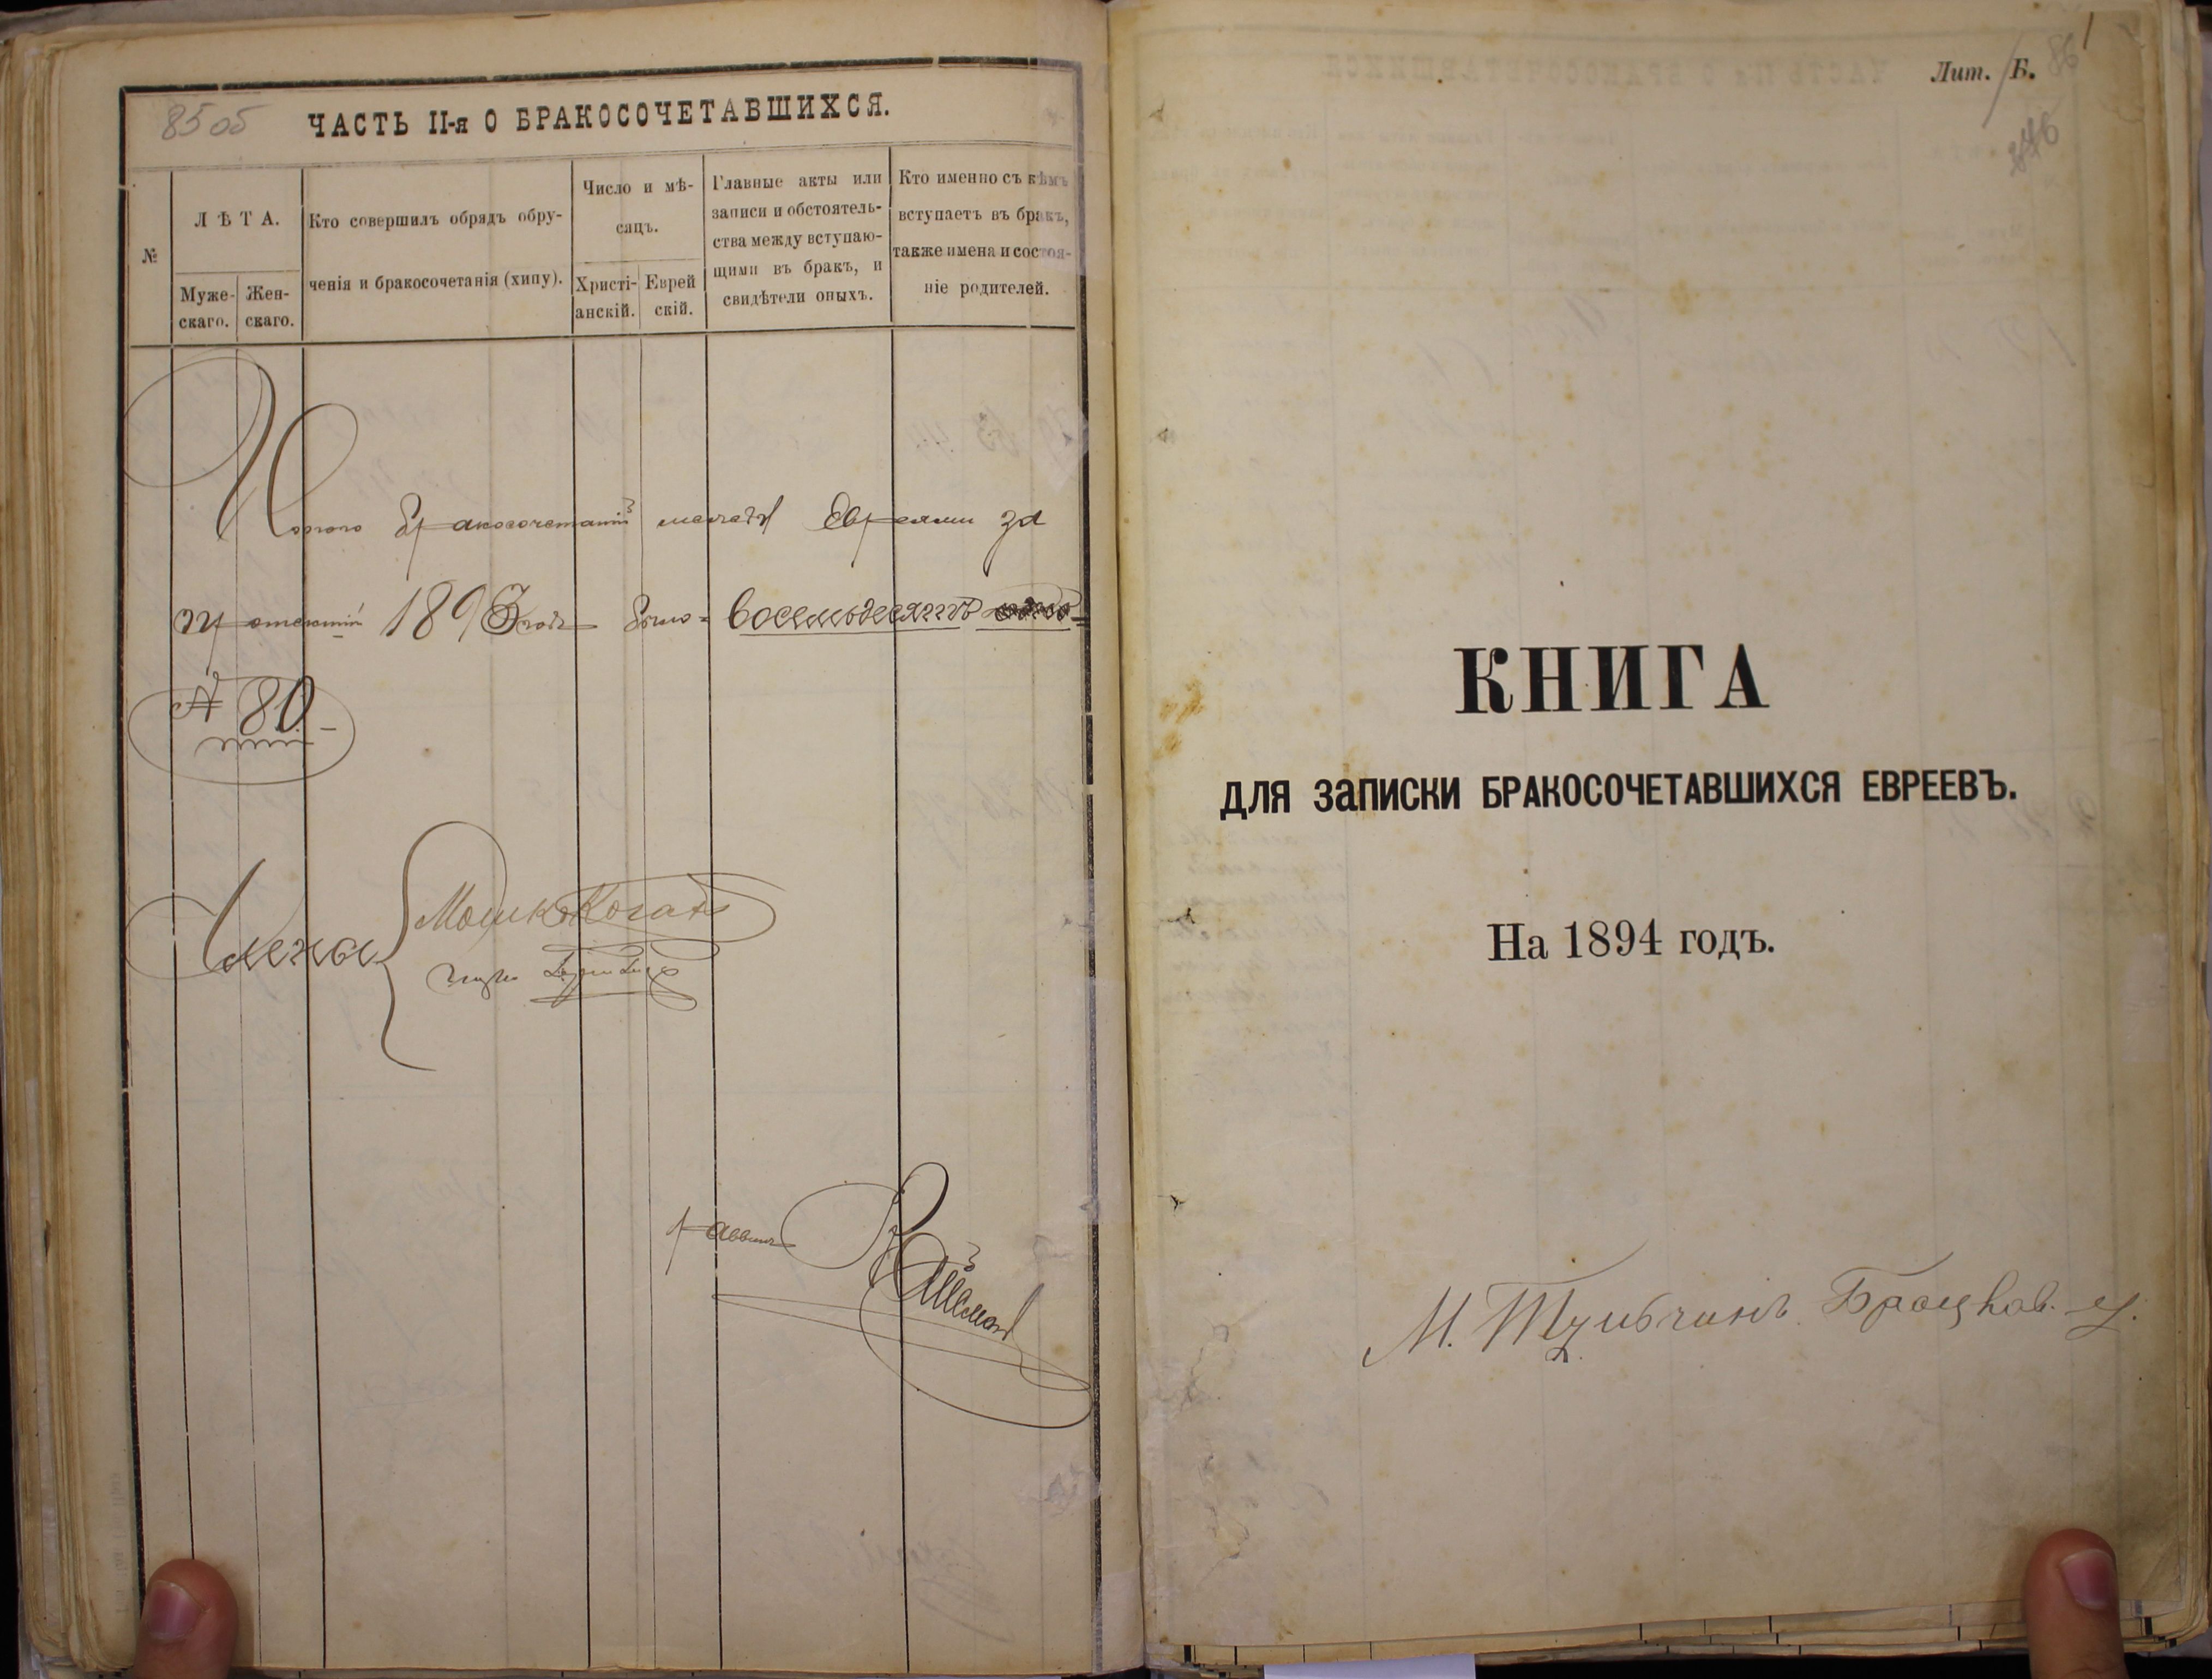 85 об
ЧАСТЬ II-я О БРАКОСОЧЕТАВШИХСЯ.
№
ЛѢТА.
Муже-
скаго.
Жен-
скаго.
Кто совершилъ обрядъ обру-
ченія и бракосочетанія (хипу).
Число и мѣ-
сяцъ.
Христі-
анскій.
Еврей
скій.
Главные акты или
записи и обстоятель-
ства между вступаю-
щими въ бракъ, и
свидѣтели оныхъ.
Кто именно съ кѣмъ
вступаетъ въ бракъ,
также имена и состоя-
ніе родителей.
Итого бракосочетаній между Евреями за
1893 годъ было восемьдесятъ
№ 80
Члены
Мошко Коганъ
раввинъ
Лит. Б.
86
1
КНИГА
для записки БРАКОСОЧЕТАВШИХСЯ ЕВРЕЕВЪ.
На 1894 годъ.
М. Тульчинъ Брацлав. у.